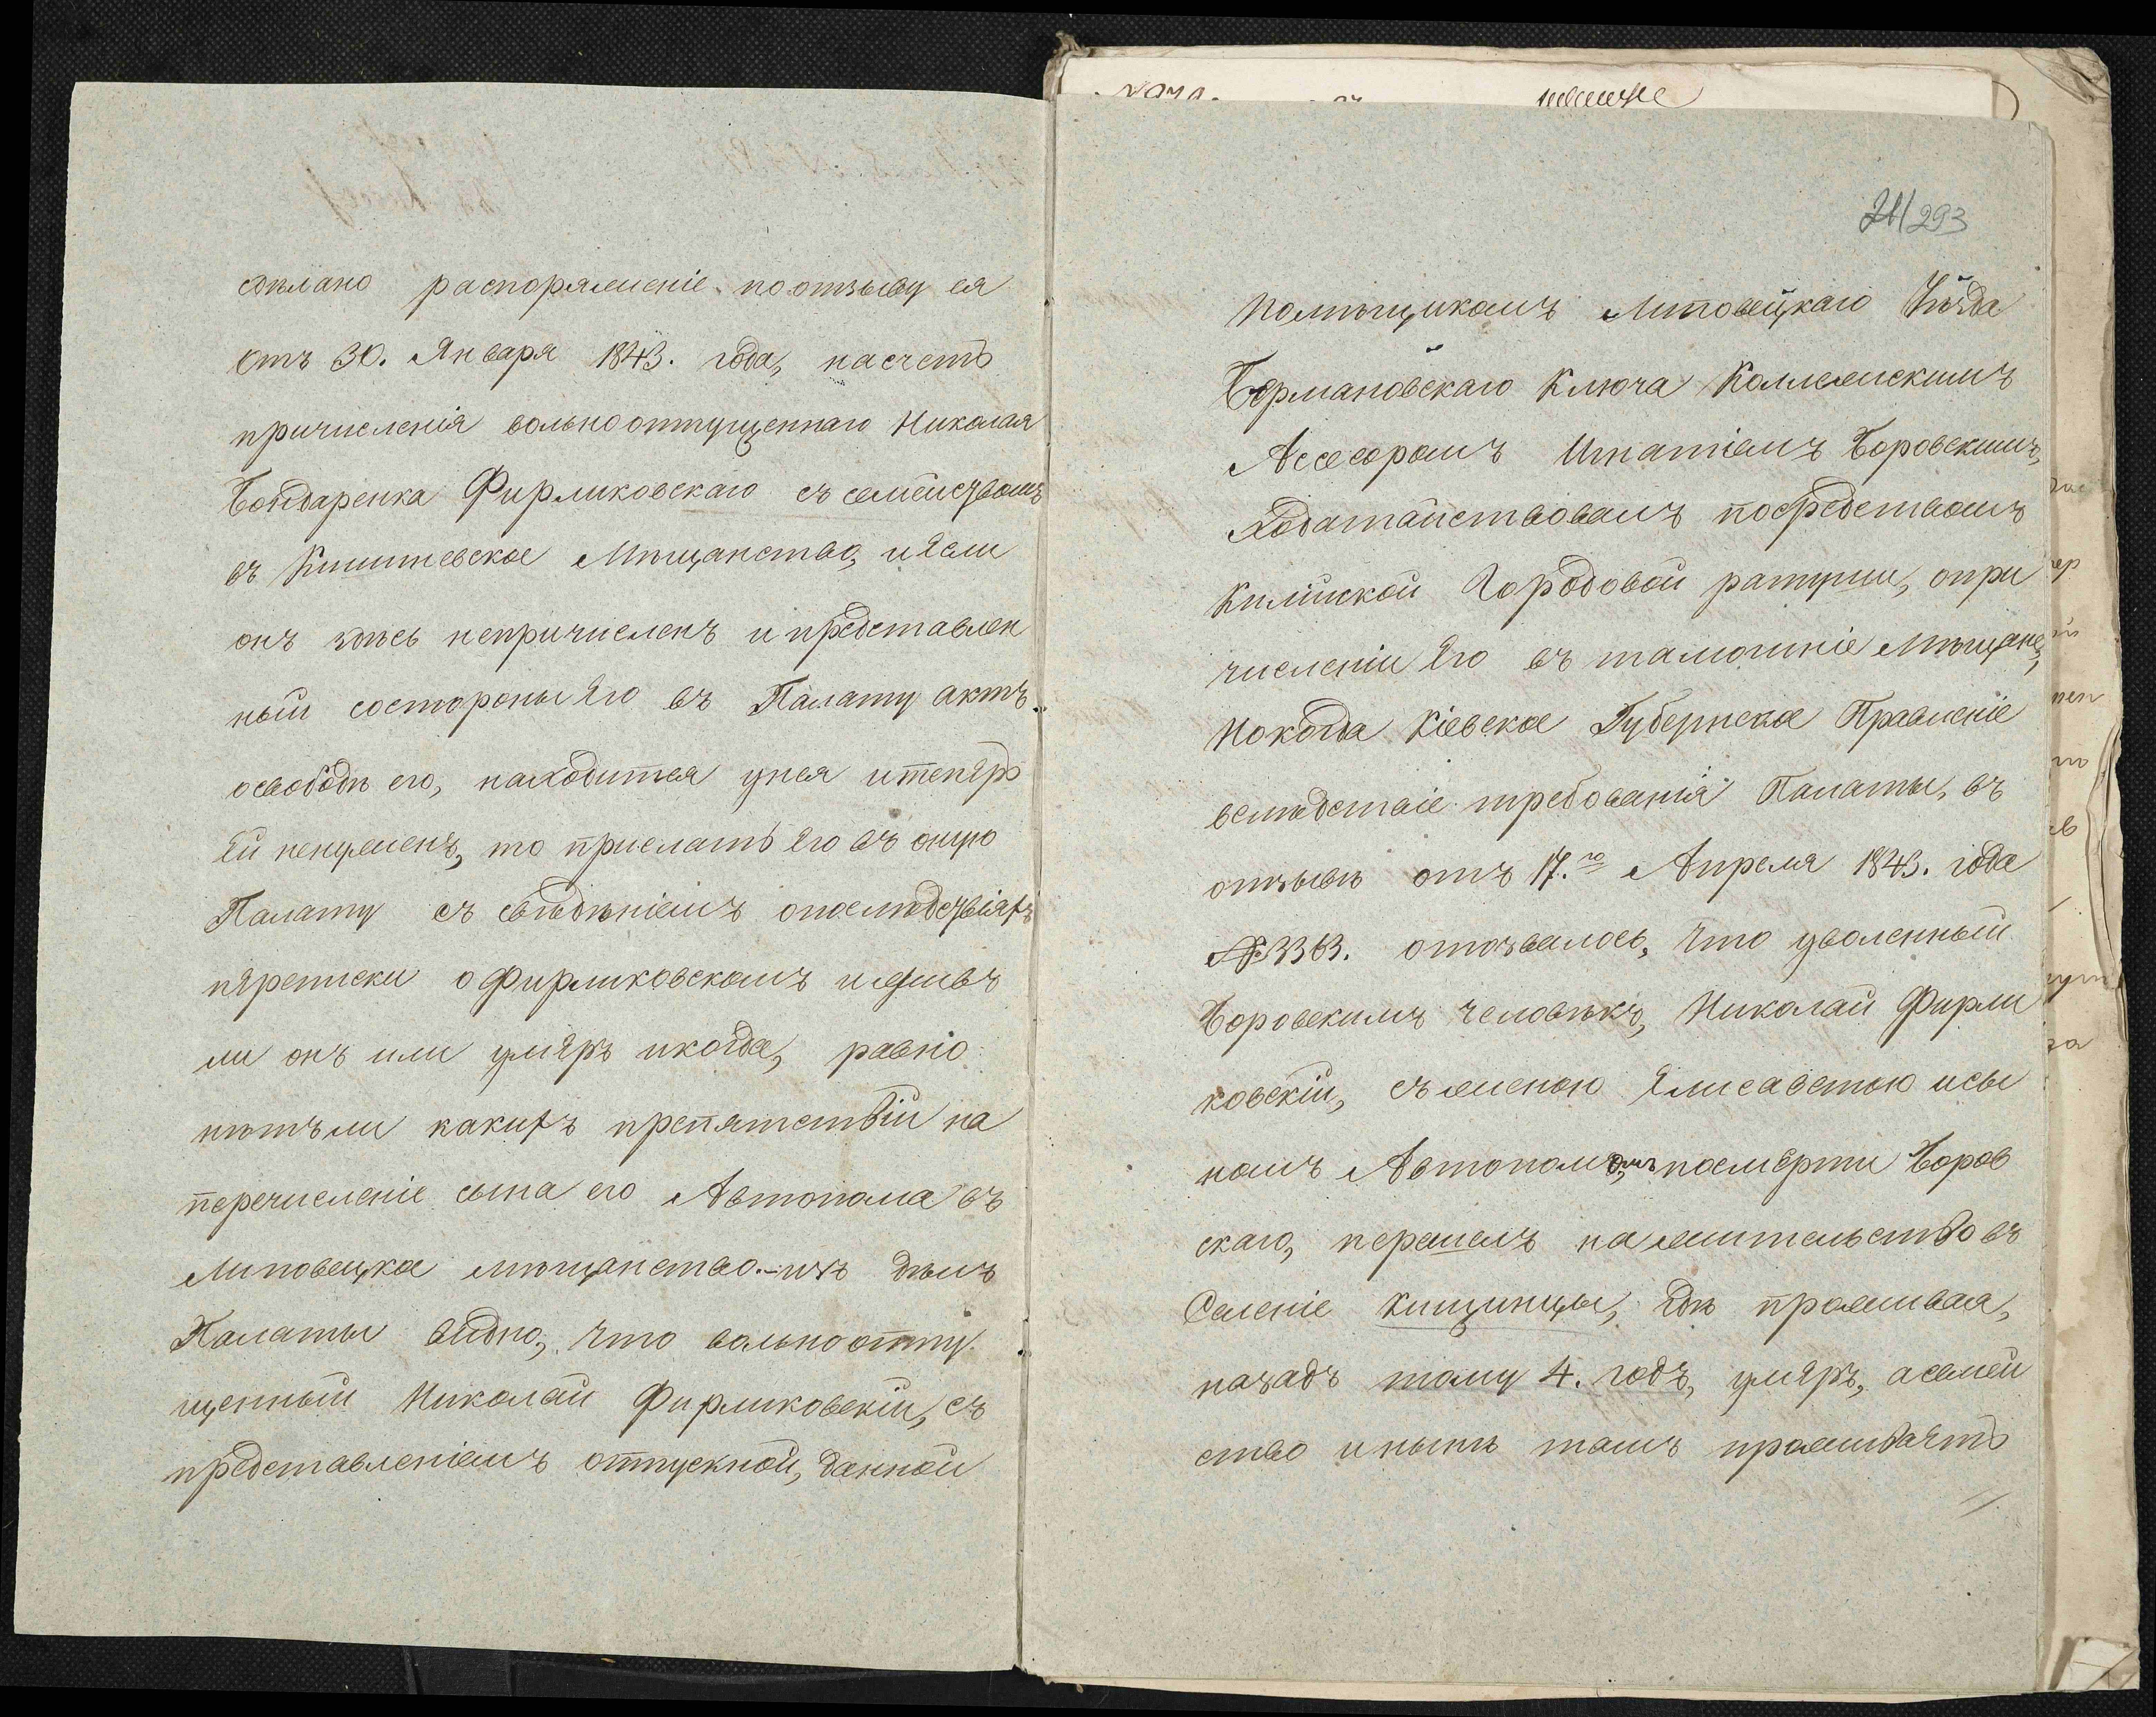 сдѣлано распоряженіе по отзыву ея
отъ 30. Января 1843. года, насчетъ
причисленія вольноотпущеннаго Николая
Бондаренка Фирликовскаго съ семействомъ
въ Кишиневское Мѣщанство, и если
онъ здѣсь непричисленъ и представлен
ный состороны его въ Палату актъ
освободѣ его, находится унея итеперь
ей ненуженъ, то прислать его въ оную
Палату съ свѣдѣніемъ опослѣдствіяхъ
переписки о Фирликовскомъ и живъ
ли онъ или умеръ икогда, равно
нѣтъ ли какихъ препятствій на
перечисленіе сына его Автонома въ
Липовецкое мѣщанство.- изъ дѣлъ
Палаты видно, что вольноотпу
щенный Николай Фирликовскій, съ
представленіемъ отпускной, данной
211 293
Помѣщикомъ Липовецкаго Уѣзда
Ассесоромъ Игнатіемъ Боровскимъ,
Ключа Коллежскимъ
ходатайствовалъ посредствомъ
Килійской Городовой ратуши, опри
численіи его въ тамошніе мѣщане,
Нокогда Кіевское Губернское Правленіе
вслѣдствіе требованія Палаты, въ
отзывѣ отъ 17.го Апреля 1843. года
№ 3363. отозвалось, что уволенный
Боровскимъ человѣкъ, Николай Фирли
ковскій, съ женою Елисаветою исы
номъ Автономомъ, посмерти Боров
скаго, перешелъ на жительство въ
Селеніе Кищинцы, гдѣ проживая,
назадъ тому 4. годъ, умеръ, а семей
ство инынѣ тамъ проживаетъ